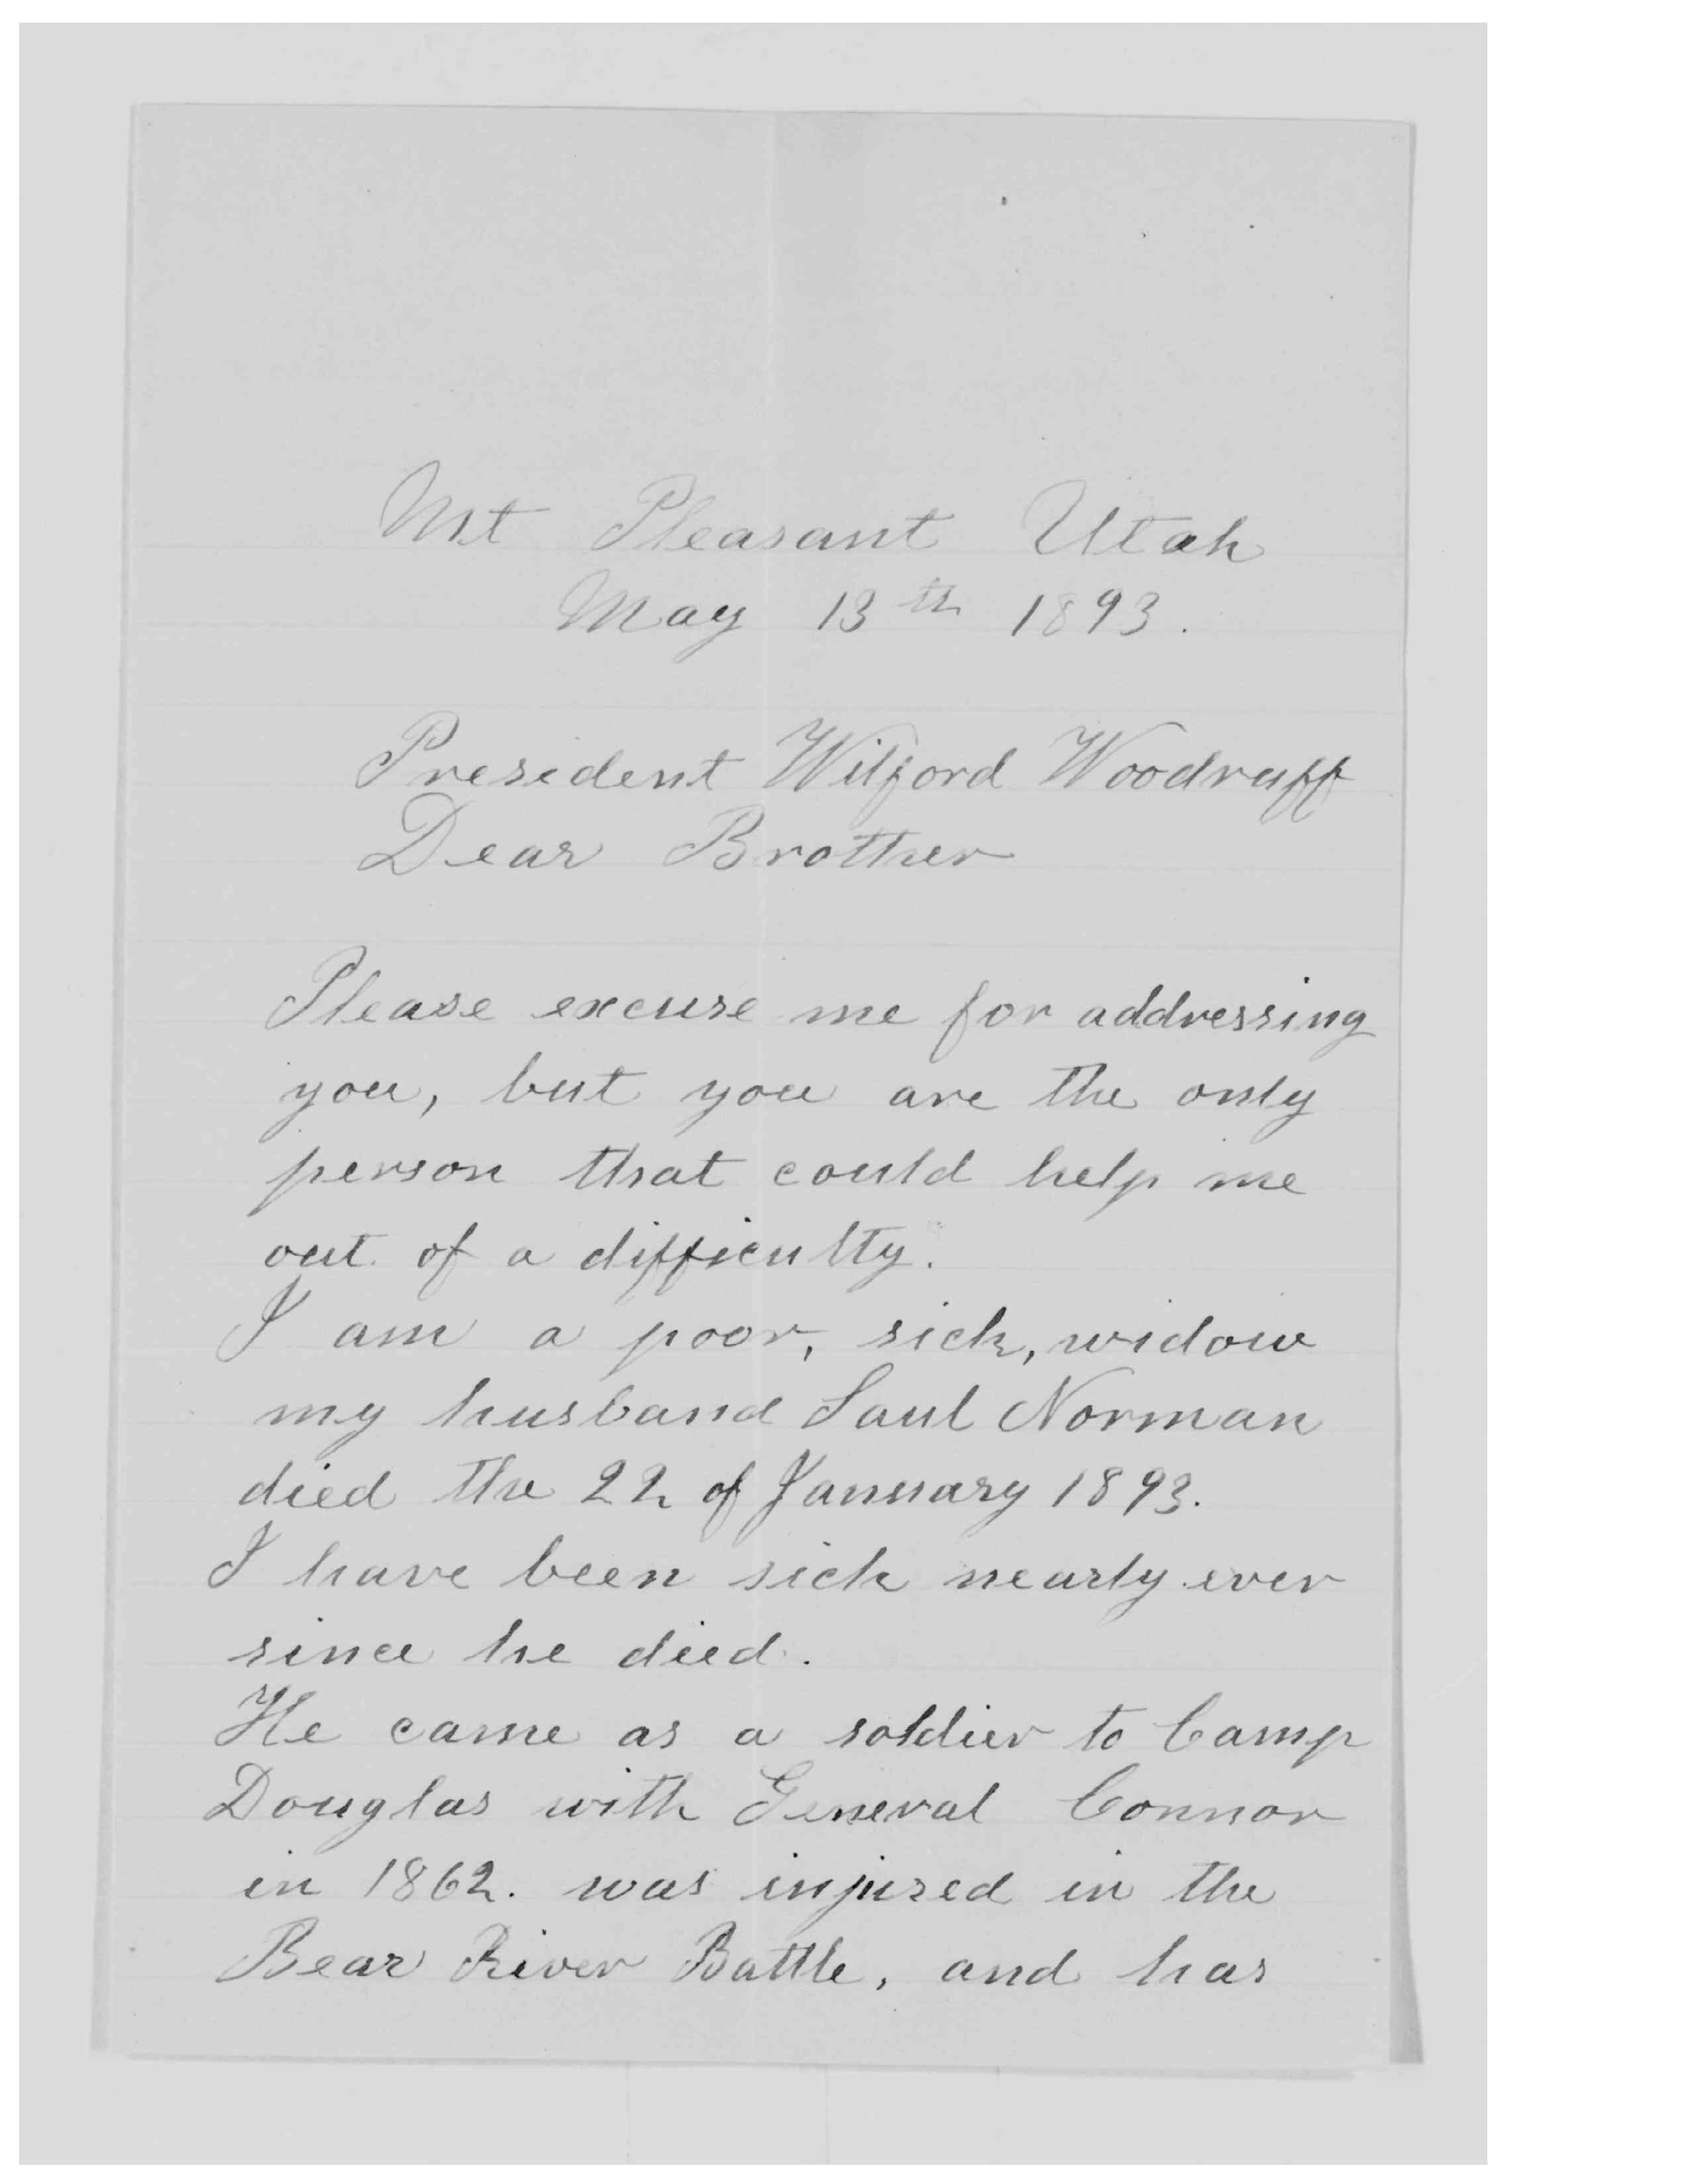 Mt Pleasant Utah
May 13th 1893.
President Wilford Woodruff
Dear Brother
Please excuse me for addressing
you, but you are the only
person that could help me
out of a difficulty.
I am a poor, sick, widow
my husband Saul Norman
died the 22 of January 1893.
I have been sick nearly ever
since he died.
He came as a soldier to Camp
Douglas with General Connor
in 1862. was injured in the
Bear River Battle, and has